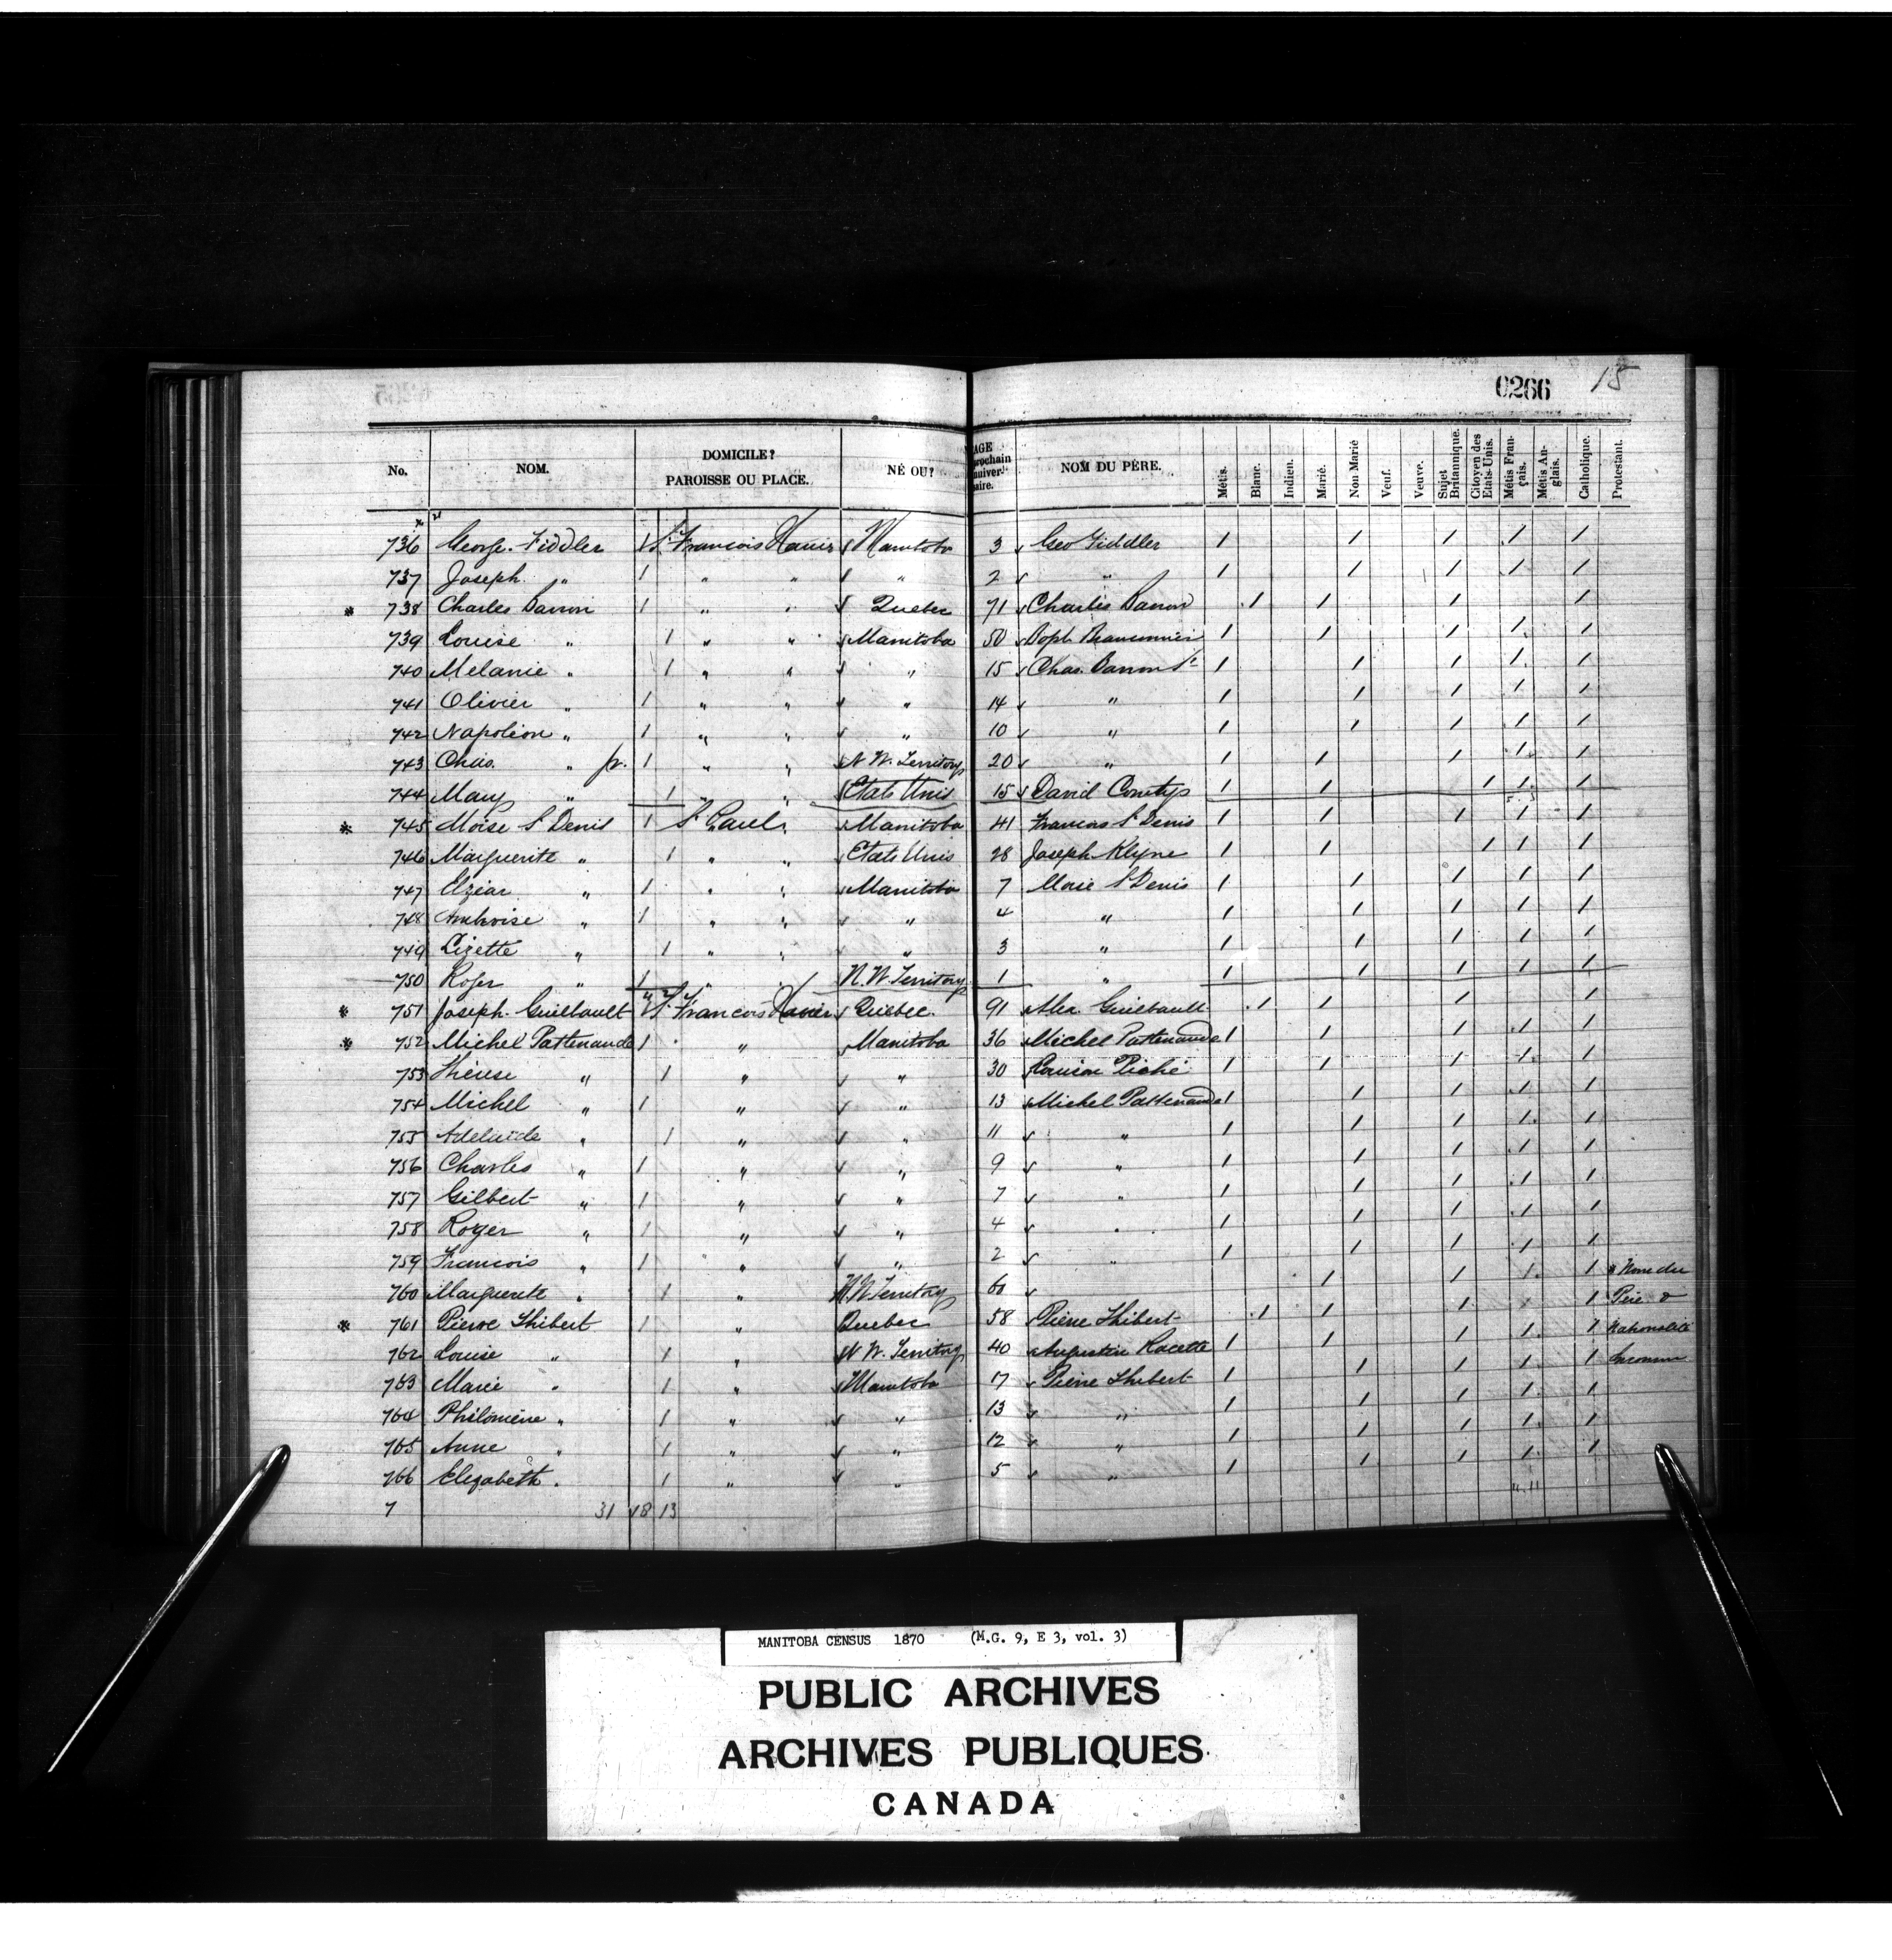 0266 15
No. NOM. DOMICILE? PAROISSE OU PLACE. NÉ OU? AGE prochain anniversaire. NOM DU PÈRE. Métis. Blanc. Indien. Marié. Non Marié Veuf. Veuve. Sujet Britannique. Citoyen des Etats-Unis. Métis Français. Métis Anglais. Catholique. Protestant.
736 George Fiddler 1 St Francois Xavier Manitoba 3 Geo Fiddler 1 1 1 1 1
737 Joseph " 1 " " " 2 " 1 1 1 1 1
* 738 Charles Barron 1 " " Quebec 71 Charles Barron 1 1 1 1
739 Louise " 1 " " Manitoba 50 1 1 1 1 1
740 Melanie " 1 " " " 15 Chas. Barron Sr 1 1 1 1 1
741 Olivier " 1 " " " 14 " 1 1 1 1 1
742 Napoléon " 1 " " " 10 " 1 1 1 1 1
743 Chas. " jr. 1 " " N. W. Territory 20 " 1 1 1 1 1
744 Mary " 1 " " Etats Unis 15 David 1 1 1 1 1
* 745 Moise St Denis 1 St Paul " Manitoba 41 Francois St Denis 1 1 1 1 1
746 Marguerite " 1 " " Etats Unis 28 Joseph Klyne 1 1 1 1 1
747 Elzéar " 1 " " Manitoba 7 Moise St Denis 1 1 1 1 1
748 Ambroise " 1 " " " 4 " 1 1 1 1 1
749 Lizette " 1 " " " 3 " 1 1 1 1 1
750 Roger " 1 " " N. W. Territory 1 " 1 1 1 1 1
* 751 Joseph Guilbault 1 St Francois Xavier Quebec. 91 Alex. Guilbault 1 1 1 1
* 752 Michel Pattenaude 1 " " Manitoba 36 Michel Pattenaude 1 1 1 1 1
753 Thérese " 1 " " 30 Louison Piché 1 1 1 1 1
754 Michel " 1 " " 13 Michel Pattenaude 1 1 1 1 1
755 Adelaide " 1 " " 11 " 1 1 1 1 1
756 Charles " 1 " " 9 " 1 1 1 1 1
757 Gilbert " 1 " " 7 " 1 1 1 1 1
758 Roger " 1 " " 4 " 1 1 1 1 1
759 Francois " 1 " " 2 " 1 1 1 1 1
760 Marguerite " 1 " N. W. Territory 60 1 1 1 1 * Nom du
* 761 Pierre Thibert 1 " Quebec 58 Pierre Thibert 1 1 1 1 Père &
762 Louise " 1 " N. W. Territory 40 Augustin Racette 1 1 1 1 1 Nationalité
763 Marie " 1 " Manitoba 17 Pierre Thibert 1 1 1 1 1 Inconnu
764 Philomène " 1 " " 13 " 1 1 1 1 1
765 Anne " 1 " " 12 " 1 1 1 1 1
766 Elizabeth " 1 " " 5 " 1 1 1 1 1
7 31 18 13
MANITOBA CENSUS 1870 (M.G. 9, E 3, vol. 3)
PUBLIC ARCHIVES
ARCHIVES PUBLIQUES
CANADA